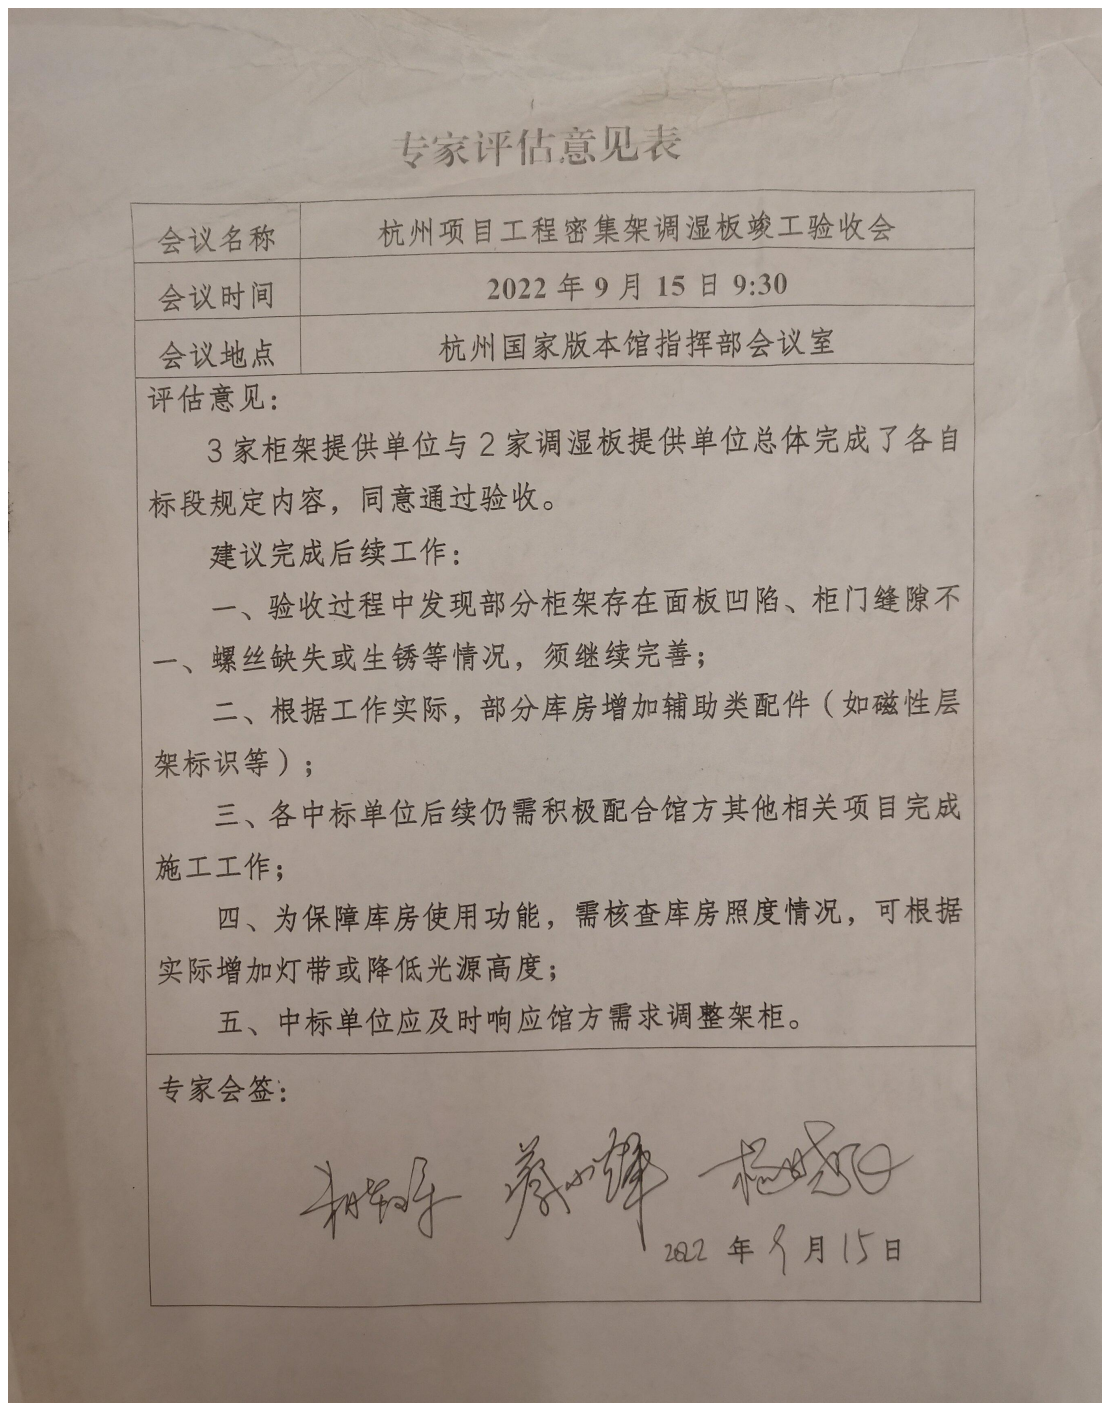 专家评估意见表
会议名称 杭州项目工程密集架调湿板竣工验收会
会议时间 2022年9月15日9:30
会议地点 杭州国家版本馆指挥部会议室
评估意见：
3家柜架提供单位与2家调湿板提供单位总体完成了各自
标段规定内容，同意通过验收。
建议完成后续工作：
一、验收过程中发现部分柜架存在面板凹陷、柜门缝隙不
一、螺丝缺失或生锈等情况，须继续完善；
二、根据工作实际，部分库房增加辅助类配件（如磁性层
架标识等）；
三、各中标单位后续仍需积极配合馆方其他相关项目完成
施工工作；
四、为保障库房使用功能，需核查库房照度情况，可根据
实际增加灯带或降低光源高度；
五、中标单位应及时响应馆方需求调整架柜。
专家会签：
2022年9月15日